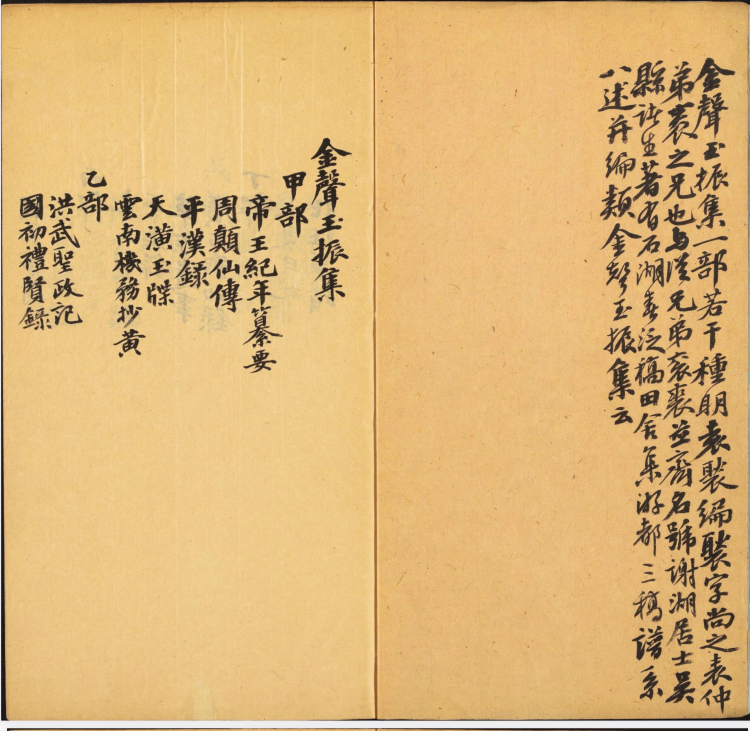 金聲玉振集一部若干種明袁褧編褧字尚之表仲
弟袠之兄也與從兄弟袞裘並齊名號謝湖居士吳
縣諸生著有石湖春泛稿田舍集游都三稿譜系
八述并編類金聲玉振集云
金聲玉振集
甲部
帝王紀年纂要
周顛仙傳
平漢録
天潢玉牒
雲南機務抄黃
乙部
洪武聖政記
國初禮賢錄